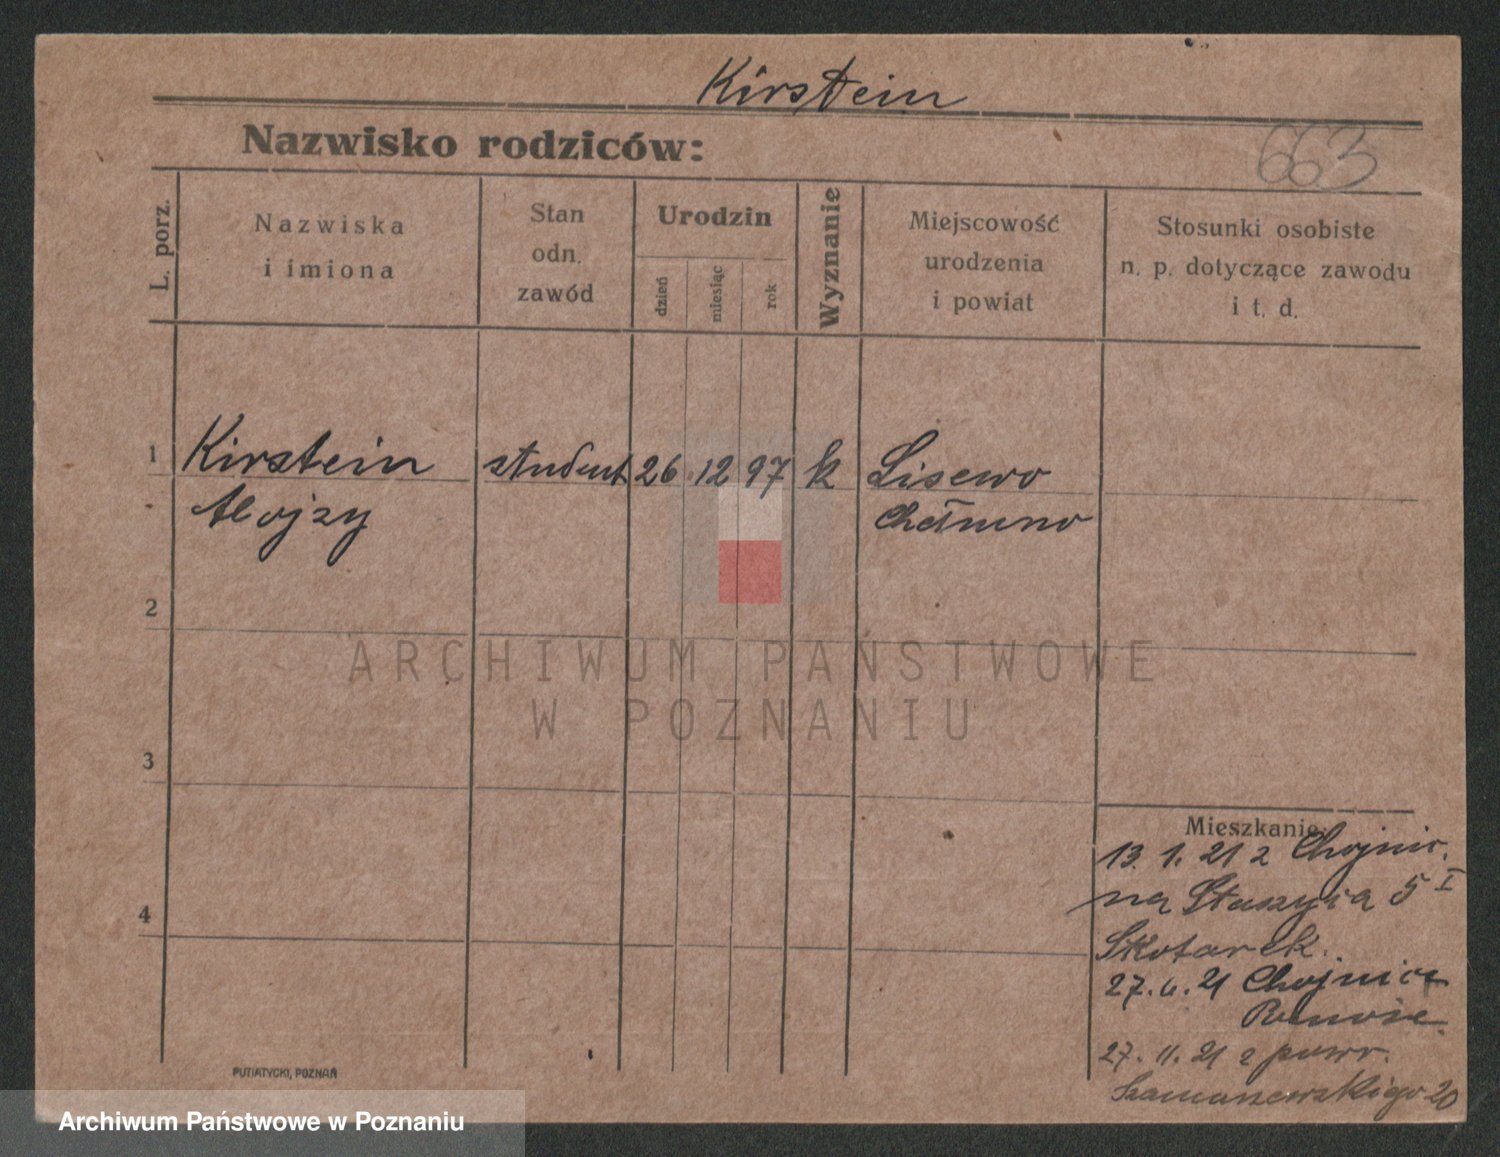 Kirstein
Nazwisko rodziców:
663
L. porz.
Nazwiska
i imiona
Stan
odn.
zawód
Urodzin
dzień
miesiąc
rok
Wyznanie
Miejscowość
urodzenia
i powiat
Stosunki osobiste
n. p. dotyczące zawodu
i t. d.
1
Kirstein
Alojzy
student
26
12
97
k
Lisewo
Chełmno
2
3
4
Mieszkanie
13. 1. 21 z Chojnic.
na Staszyca 5 I
Skotarek.
27. 6. 21 Chojnice
27. 11. 21 z powr.
Szamarzewskiego 20
PUTIATYCKI, POZNAŃ
ARCHIWUM PAŃSTWOWE
W POZNANIU
Archiwum Państwowe w Poznaniu